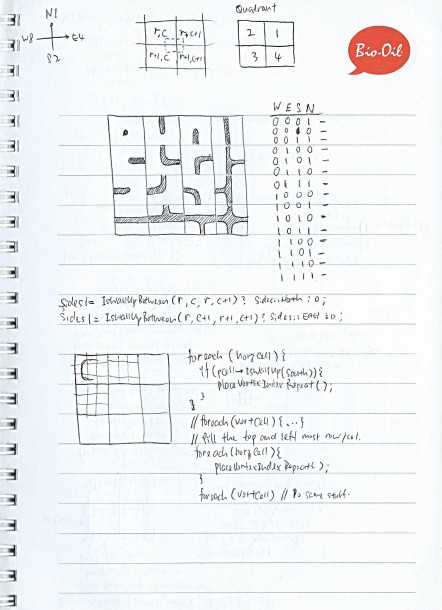 N1
W8 E4
S2
r,c r,c+1
r+1,c r+1,c+1
Quadrant
2 1
3 4
Bio-Oil
W E S N
0 0 0 1 -
0 0 1 0 -
0 0 1 1 -
0 1 0 0 -
0 1 0 1 -
0 1 1 0 -
0 1 1 1 -
1 0 0 0 -
1 0 0 1 -
1 0 1 0 -
1 0 1 1 -
1 1 0 0 -
1 1 0 1 -
1 1 1 0 -
1 1 1 1 -
Sides |= IsWallUpBetween(r, c, r, c+1) ? Sides::North : 0;
Sides |= IsWallUpBetween(r, c+1, r+1, c+1) ? Sides::East : 0;
foreach (horzCell) {
if (pCell->IsWallUp(South)) {
PlaceVertexIndexRepeat();
}
}
// foreach (vertCell) { ... }
// fill the top and left most row/col.
foreach (horzCell) {
PlaceVertexIndexRepeat();
}
foreach (vertCell) // Do same stuff.